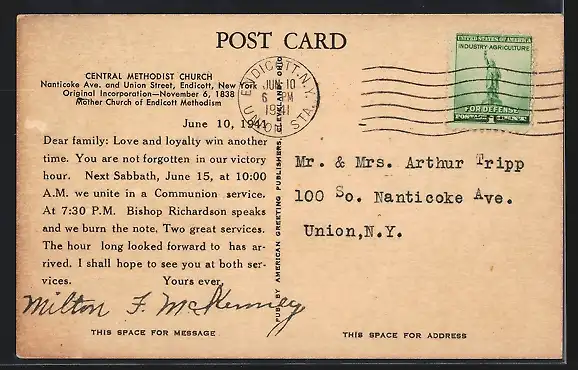 POST CARD
CENTRAL METHODIST CHURCH
Nanticoke Ave. and Union Street, Endicott, New York
Original Incorporation—November 6, 1838
Mother Church of Endicott Methodism
June 10, 1941
Dear family: Love and loyalty win another
time. You are not forgotten in our victory
hour. Next Sabbath, June 15, at 10:00
A.M. we unite in a Communion service.
At 7:30 P.M. Bishop Richardson speaks
and we burn the note. Two great services.
The hour long looked forward to has ar-
rived. I shall hope to see you at both ser-
vices. Yours ever,
Milton F. McKenney
THIS SPACE FOR MESSAGE
PUB. BY AMERICAN GREETING PUBLISHERS, CLEVELAND, OHIO
ENDICOTT, N.Y.
JUN 10
6 PM
1941
UNION STA.
UNITED STATES OF AMERICA
INDUSTRY AGRICULTURE
FOR DEFENSE
POSTAGE 1 CENT
Mr. & Mrs. Arthur Tripp
100 So. Nanticoke Ave.
Union,N.Y.
THIS SPACE FOR ADDRESS